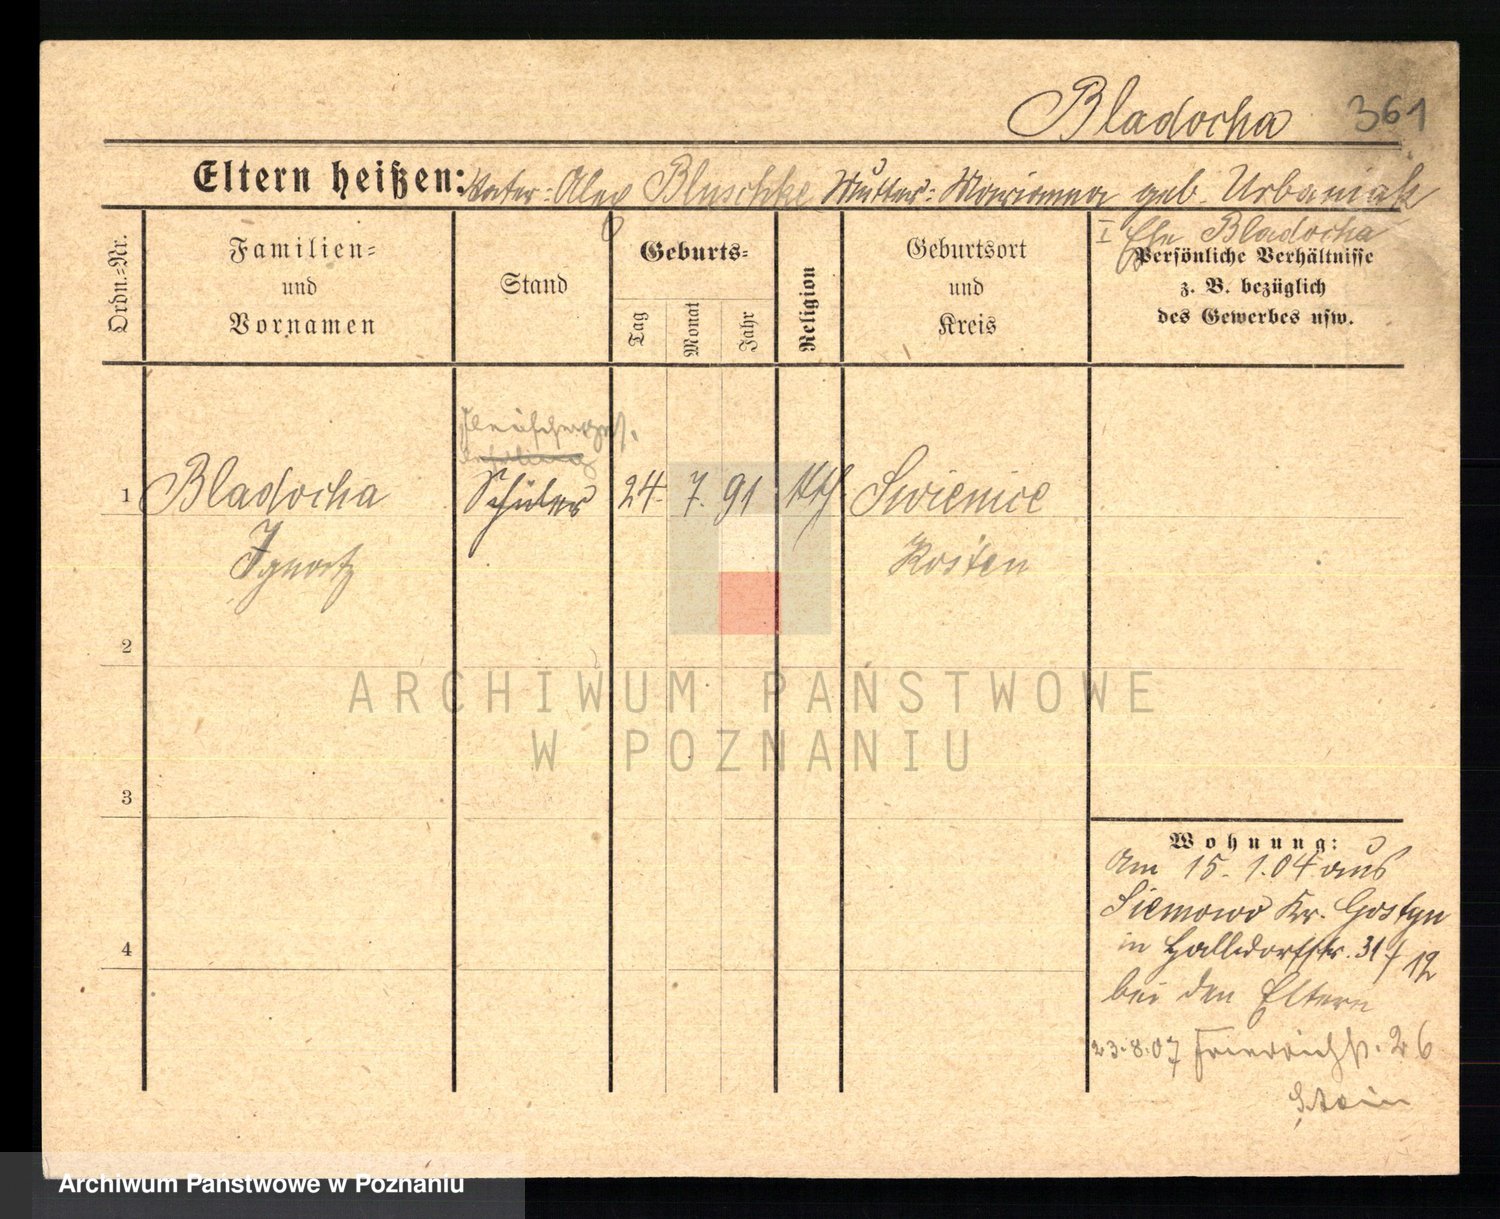 Bladocha 361
Eltern heißen: Vater: Alex Bluschke Mutter: Marianna geb. Urbaniak
I Ehe Bladocha
Ordn.-Nr.
Familien-
und
Vornamen
Stand
Geburts-
Tag
Monat
Jahr
Religion
Geburtsort
und
Kreis
Persönliche Verhältnisse
z. B. bezüglich
des Gewerbes usw.
Fleischerges.
1 Bladocha Schüler 24. 7. 91 kth. Swienice
Ignatz Kosten
2
3
4
Wohnung:
Am 15. 1. 04 aus
Siemowo Kr. Gostyn
in Halldorfstr. 31/12
bei den Eltern
23.8.07 Friedrichstr. 26
Stein
ARCHIWUM PAŃSTWOWE
W POZNANIU
Archiwum Państwowe w Poznaniu